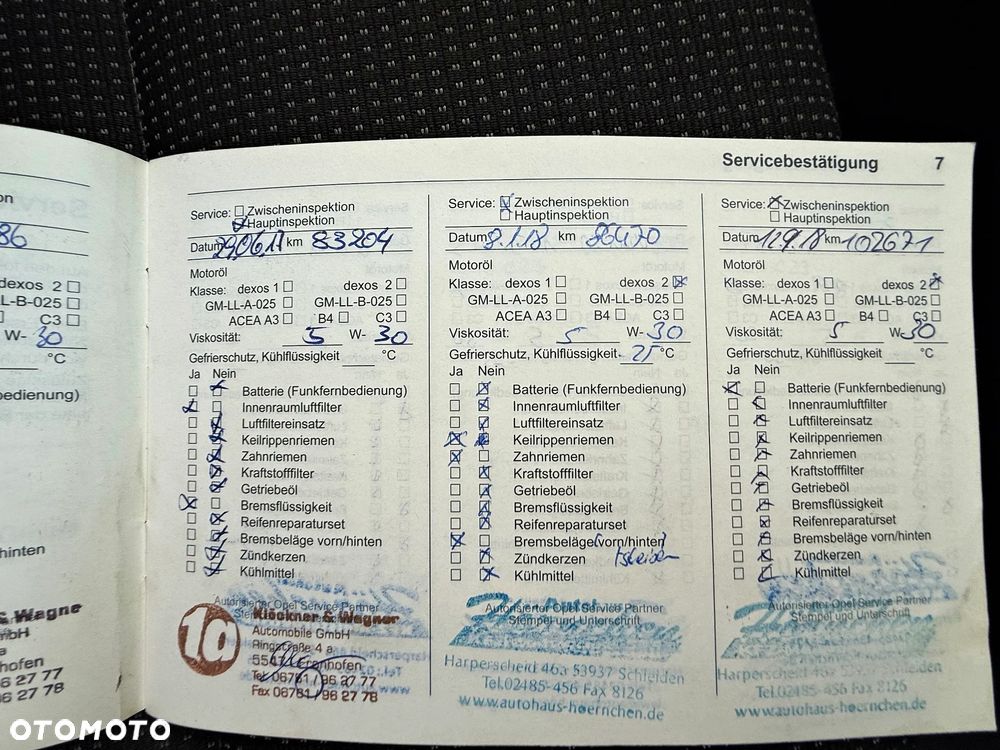 Servicebestätigung 7
on
86
dexos 2
LL-B-025
C3
W- 30
°C
bedienung)
hinten
& Wagne
mbH
a
nhofen
6 27 77
96 27 78
Service: Zwischeninspektion
Hauptinspektion
Datum 29.06.17 km 83204
Motoröl
Klasse: dexos 1 dexos 2
GM-LL-A-025 GM-LL-B-025
ACEA A3 B4 C3
Viskosität: 5 W- 30
Gefrierschutz, Kühlflüssigkeit °C
Ja Nein
Batterie (Funkfernbedienung)
Innenraumluftfilter
Luftfiltereinsatz
Keilrippenriemen
Zahnriemen
Kraftstofffilter
Getriebeöl
Bremsflüssigkeit
Reifenreparaturset
Bremsbeläge vorn/hinten
Zündkerzen
Kühlmittel
Autorisierter Opel Service Partner
10
Klöckner & Wagner
Automobile GmbH
Ringstraße 4 a
Tel. 06781 / 96 27 77
Fax 06781 / 96 27 78
Service: Zwischeninspektion
Hauptinspektion
Datum 8.1.18 km 86470
Motoröl
Klasse: dexos 1 dexos 2
GM-LL-A-025 GM-LL-B-025
ACEA A3 B4 C3
Viskosität: 5 W- 30
Gefrierschutz, Kühlflüssigkeit -25 °C
Ja Nein
Batterie (Funkfernbedienung)
Innenraumluftfilter
Luftfiltereinsatz
Keilrippenriemen
Zahnriemen
Kraftstofffilter
Getriebeöl
Bremsflüssigkeit
Reifenreparaturset
Bremsbeläge (vorn/hinten)
Zündkerzen
Kühlmittel
Autorisierter Opel Service Partner
Stempel und Unterschrift
Harperscheid 46a 53937 Schleiden
Tel.02485-456 Fax 8126
www.autohaus-hoernchen.de
Service: Zwischeninspektion
Hauptinspektion
Datum 12.9.18 km 102671
Motoröl
Klasse: dexos 1 dexos 2
GM-LL-A-025 GM-LL-B-025
ACEA A3 B4 C3
Viskosität: 5 W- 30
Gefrierschutz, Kühlflüssigkeit °C
Ja Nein
Batterie (Funkfernbedienung)
Innenraumluftfilter
Luftfiltereinsatz
Keilrippenriemen
Zahnriemen
Kraftstofffilter
Getriebeöl
Bremsflüssigkeit
Reifenreparaturset
Bremsbeläge vorn/hinten
Zündkerzen
Kühlmittel
Autorisierter Opel Service Partner
Stempel und Unterschrift
Harperscheid 46a 53937 Schleiden
Tel.02485-456 Fax 8126
www.autohaus-hoernchen.de
OTOMOTO